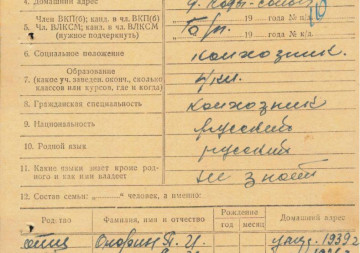 4. Домашний адрес
Член ВКП(б); канд. и чл. ВКП(б) 19 год №п/б
5. Чл. ВЛКСМ; канд. и чл. ВЛКСМ б/п. 19 год №к/д.
(нужное подчеркнуть)
6. Социальное положение колхозник
Образование
7. (какое уч. завед. оконч., сколько 4 кл.
классов или курсов, где и когда)
8. Гражданская специальность колхозник
9. Национальность русский
10. Родной язык русский
11. Какие языки знает кроме род- не знает
ного и как ими владеет
12. Состав семьи: „——“ человек, а именно:
Род.тво Фамилия, имя и отчество Рождение Домашний адрес
год месяц
отец П. И. 1939 г